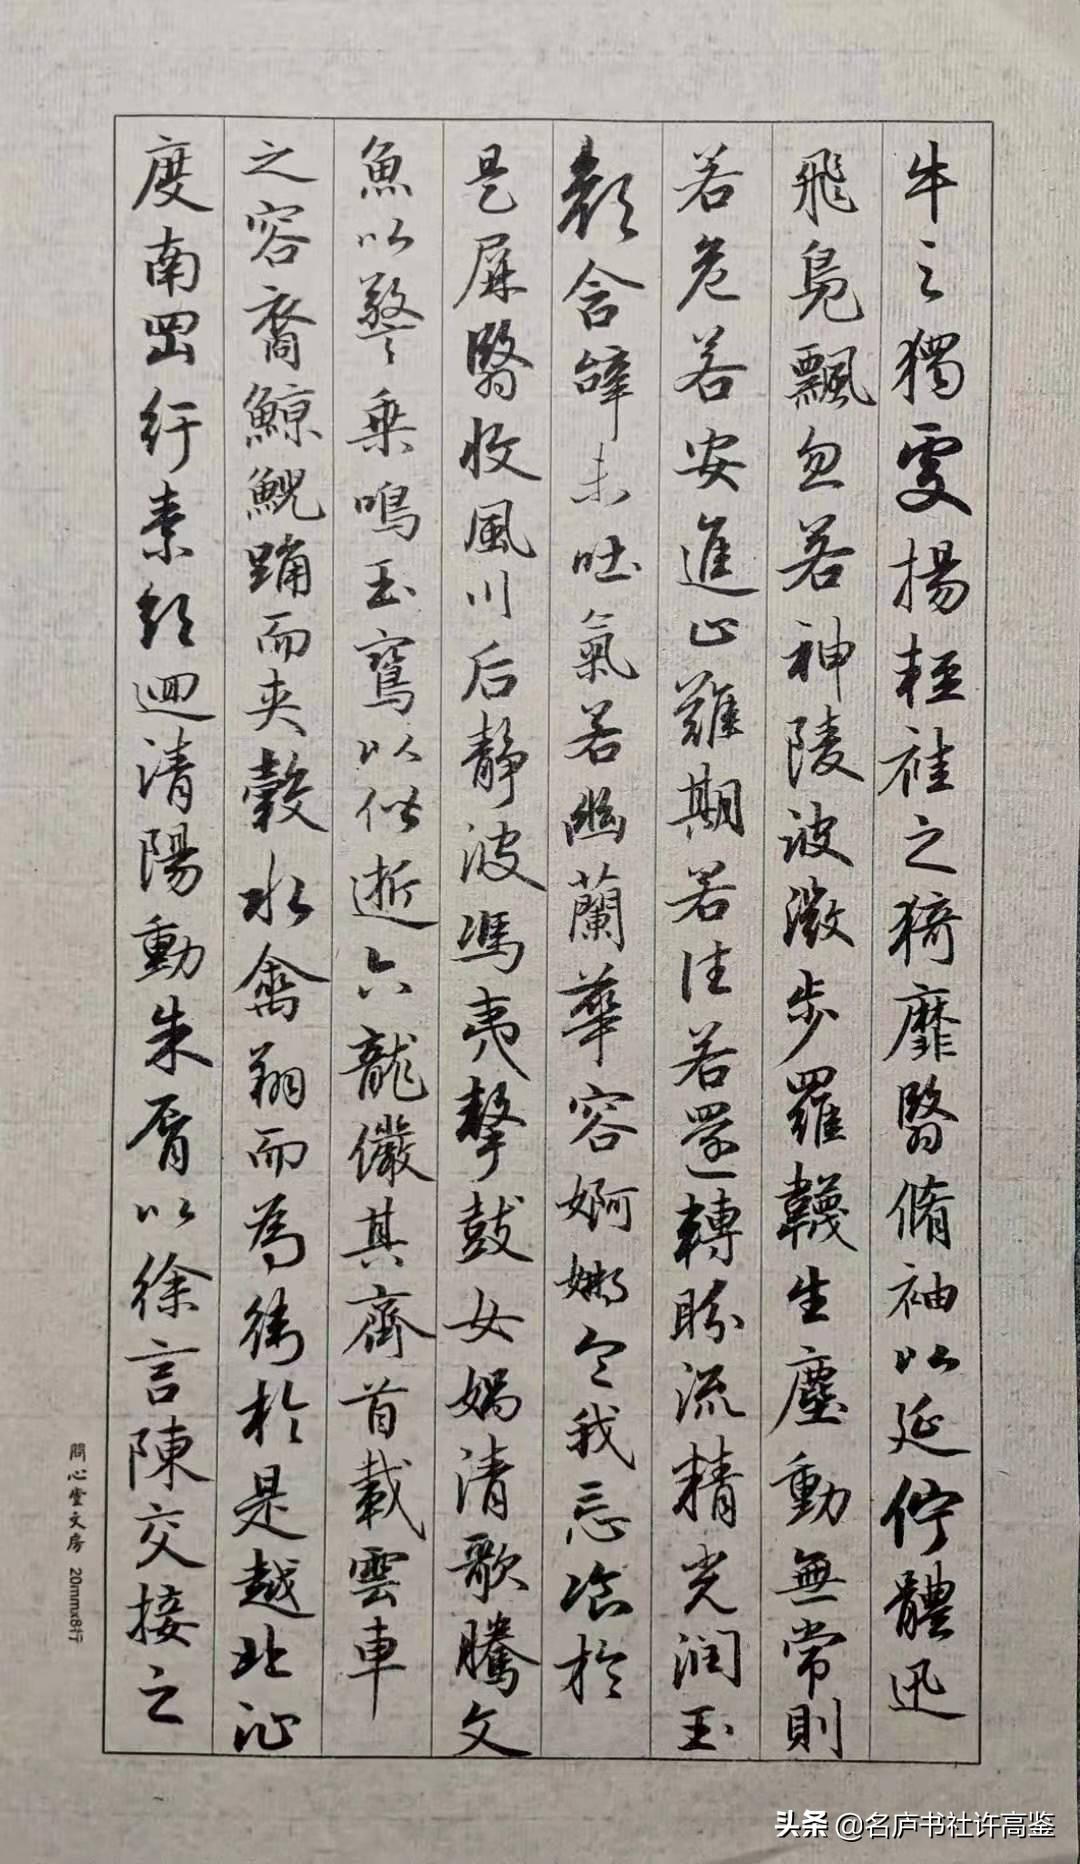 牛之獨處揚輕袿之猗靡翳脩袖以延佇體迅
飛鳧飄忽若神陵波微步羅韈生塵動無常則
若危若安進止難期若往若還轉盼流精光润玉
顏含辭未吐氣若幽蘭華容婀娜令我忘飡於
是屏翳收風川后静波馮夷擊鼓女媧清歌騰文
魚以警乗鳴玉鸞以偕逝六龍儼其齊首載雲車
之容裔鯨鯢踊而夾轂水禽翔而為衛於是越北沚
度南岡紆素領迴清陽動朱脣以徐言陳交接之
問心堂文房 20mmx8行
头条 @名庐书社许高鉴